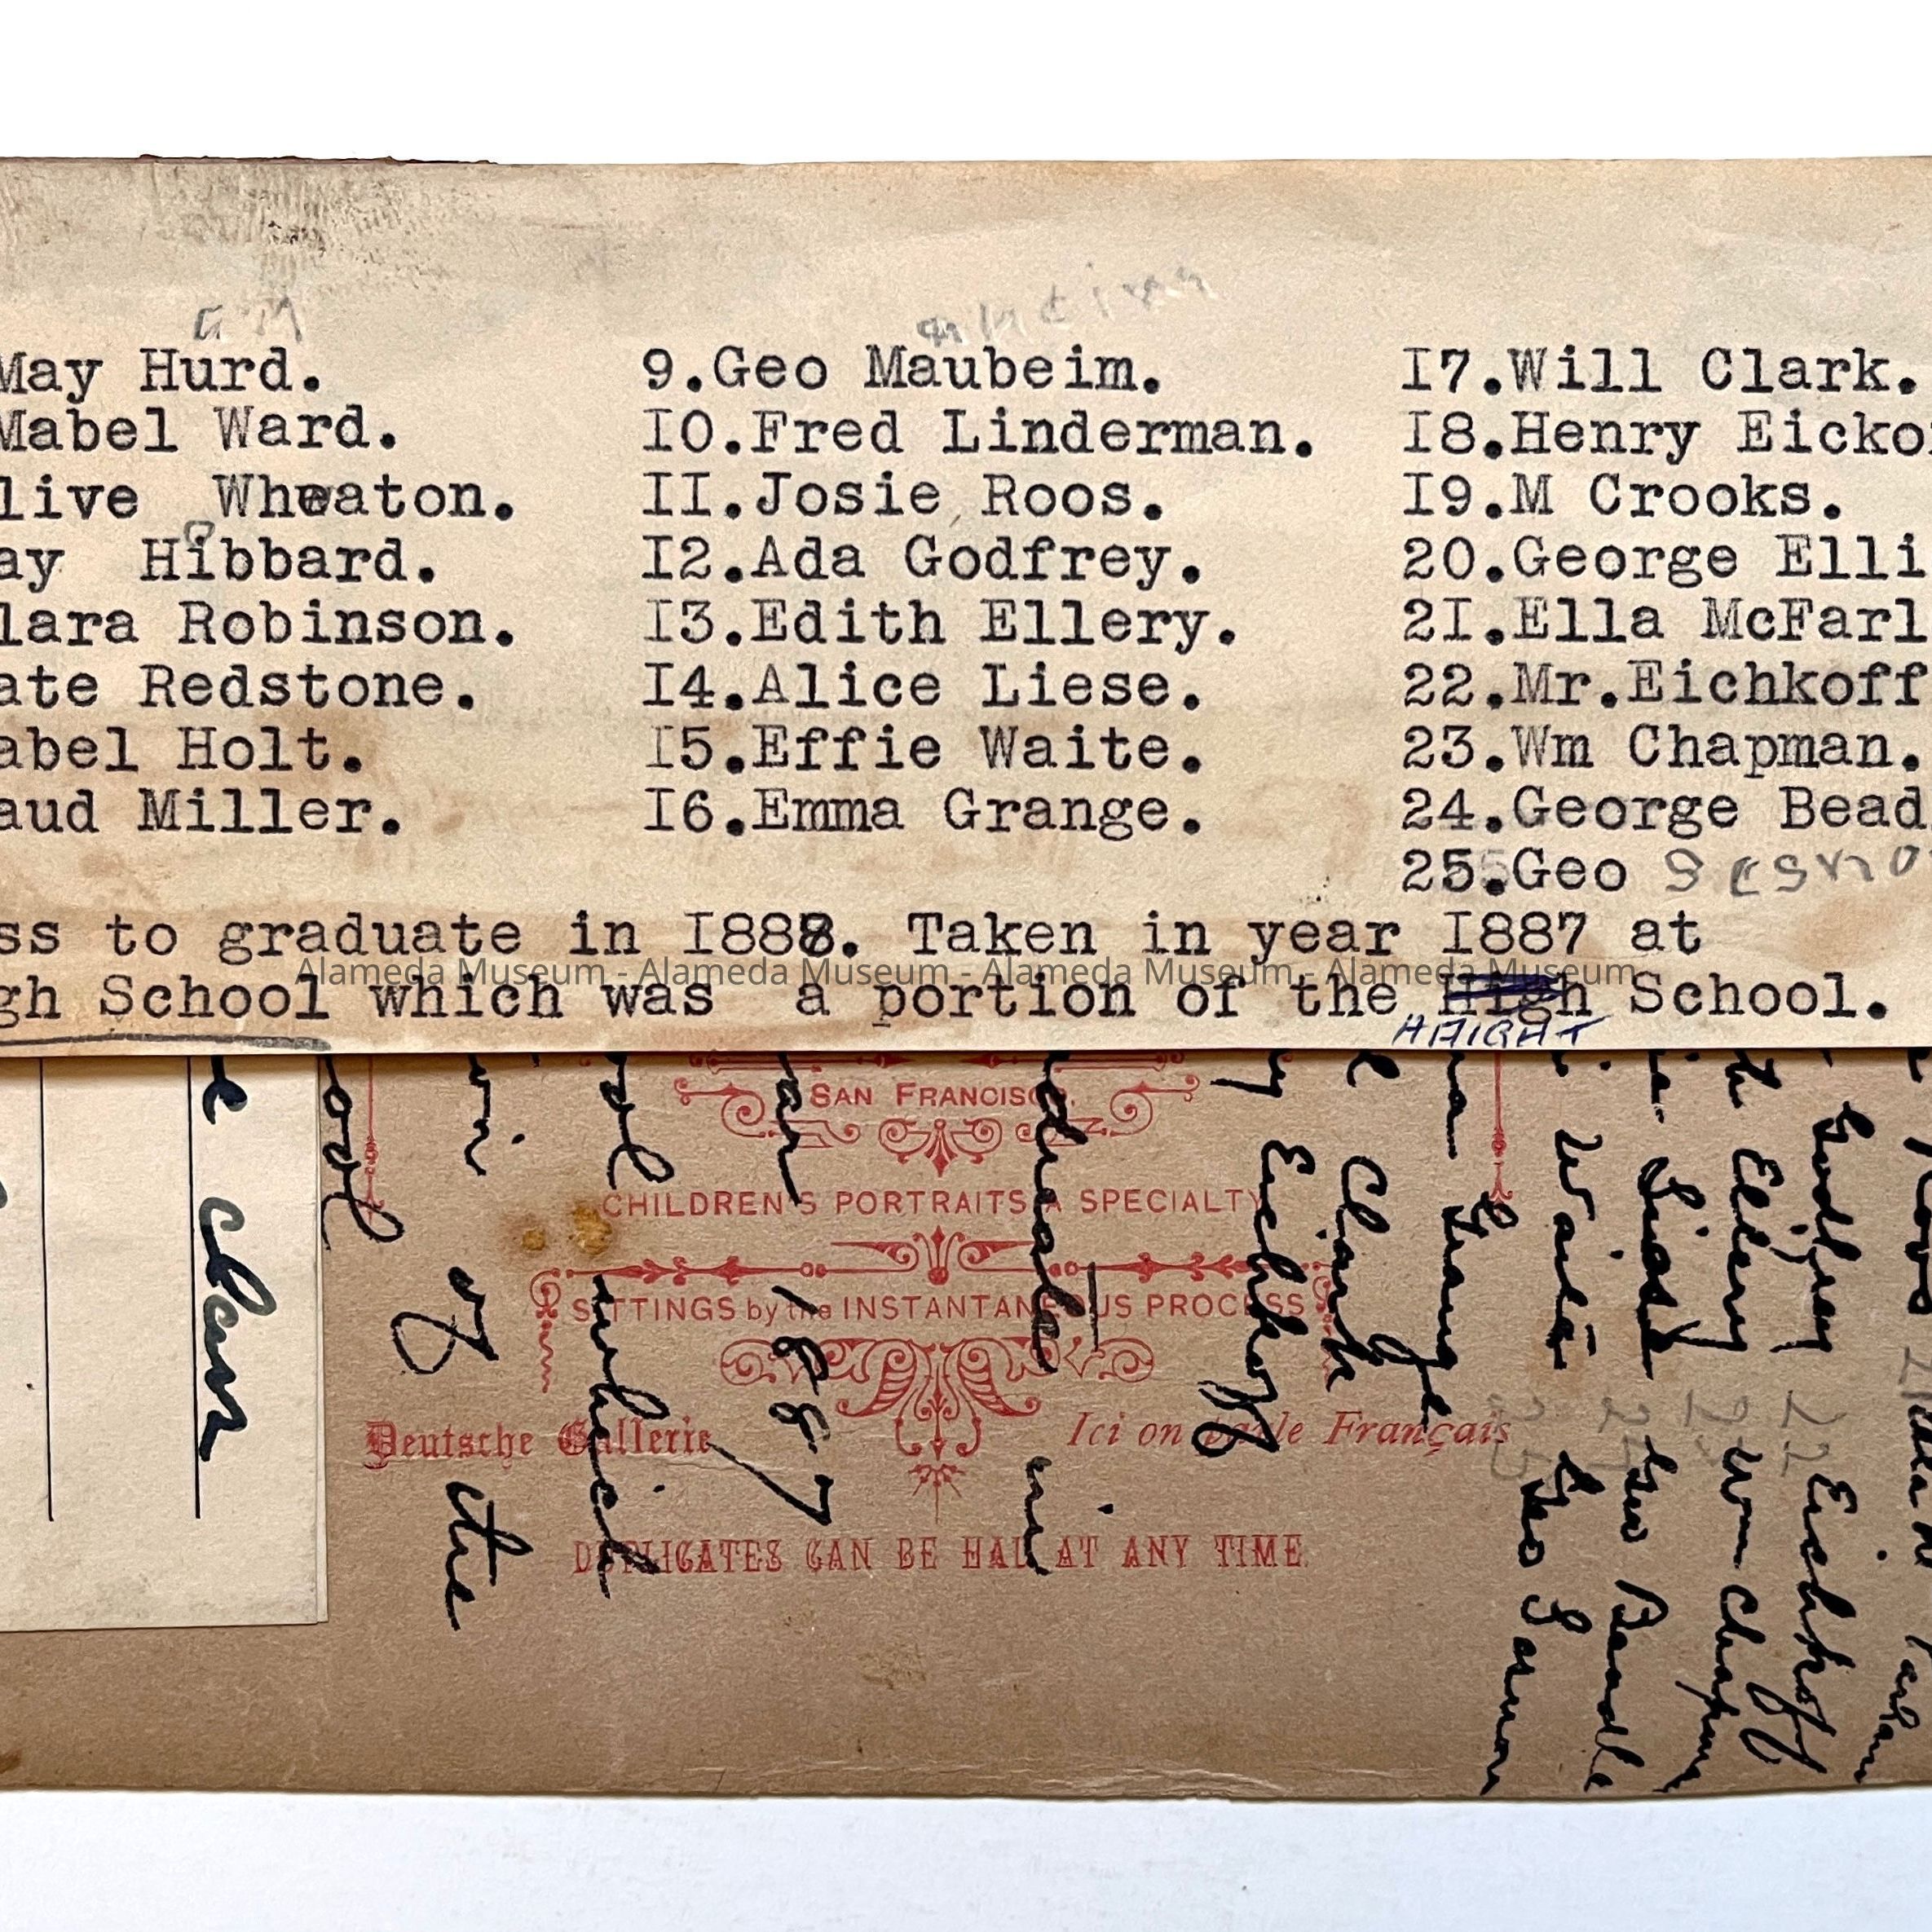 May Hurd. 9.Geo Maubeim. I7.Will Clark.
Mabel Ward. IO.Fred Linderman. I8.Henry Eicko
live Wheaton. II.Josie Roos. I9.M Crooks.
ay Hibbard. I2.Ada Godfrey. 20.George Elli
lara Robinson. I3.Edith Ellery. 2I.Ella McFarl
ate Redstone. I4.Alice Liese. 22.Mr.Eichkoff
abel Holt. I5.Effie Waite. 23.Wm Chapman.
aud Miller. I6.Emma Grange. 24.George Bead
25.Geo
ss to graduate in I888. Taken in year I887 at
Alameda Museum - Alameda Museum - Alameda Museum - Alameda Museum
gh School which was a portion of the High School.
HAIGHT
SAN FRANCISCO.
CHILDREN'S PORTRAITS A SPECIALTY
SITTINGS by the INSTANTANEOUS PROCESS
Deutsche Gallerie Ici on parle Français
DUPLICATES CAN BE HAD AT ANY TIME
Godfrey Eichkoff
Ellery Wm Chapman
Geo Beadle
Waite Geo
Grange
Clark
Eichkoff
in
1887
which
of the
class